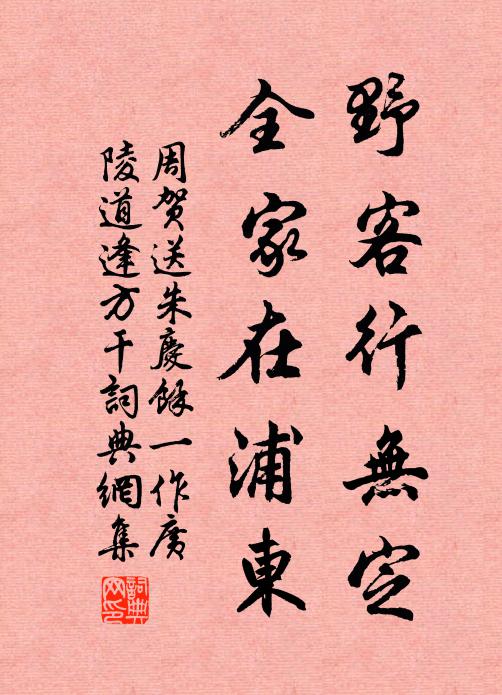 野客行無定
全家在浦東
周賀送朱慶餘一作廣
陵道逢方干詞典網集
詞典網印